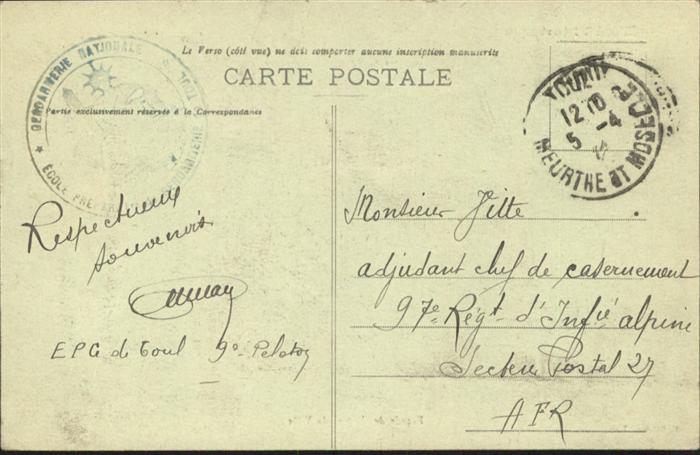 Le Verso (côté vue) ne doit comporter aucune inscription manuscrite
CARTE POSTALE
Partie exclusivement réservée à la Correspondance
★ GENDARMERIE NATIONALE
ÉCOLE PRÉPARATOIRE GENDARMERIE
TOUL
12 10
5 -4
MEURTHE ET MOSELLE
Respectueux
souvenirs
EPG de Toul 9e Peloton
Monsieur Fitte
adjudant chef de casernement
97e Régt d'Infie alpine
Secteur Postal 27
AFR